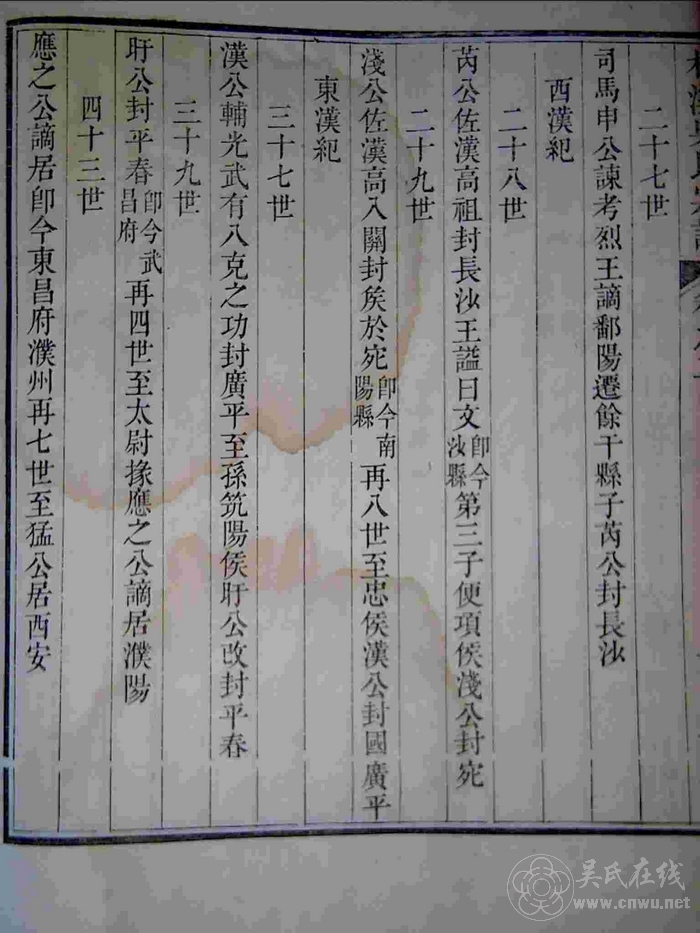 二十七世
司馬申公諫考烈王謫鄱陽遷餘干縣子芮公封長沙
西漢紀
二十八世
芮公佐漢高祖封長沙王謚曰文即今汝縣第三子便項侯淺公封宛
二十九世
淺公佐漢高入關封矦於宛即今南陽縣再八世至忠侯漢公封國廣平
東漢紀
三十七世
漢公輔光武有八克之功封廣平至孫筑陽侯盱公改封平春
三十九世
盱公封平春即今武昌府再四世至太尉掾應之公謫居濮陽
四十三世
應之公謫居即今東昌府濮州再七世至猛公居西安
吴氏在线
www.cnwu.net